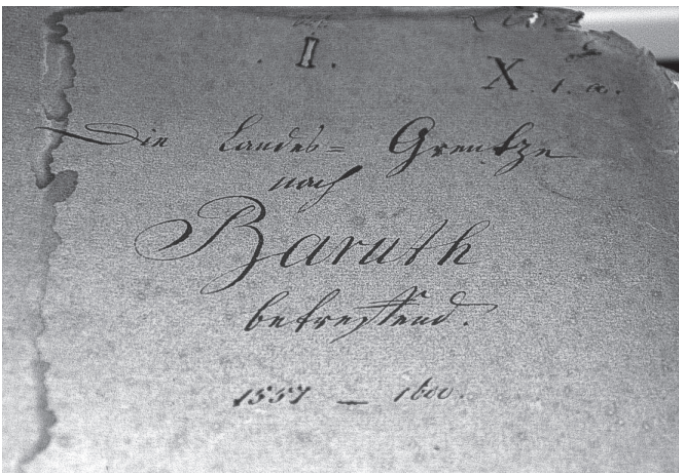 I.
X. 1. a.
Die Landes= Grentze
nach
Baruth
betreffend.
1557 — 1600.